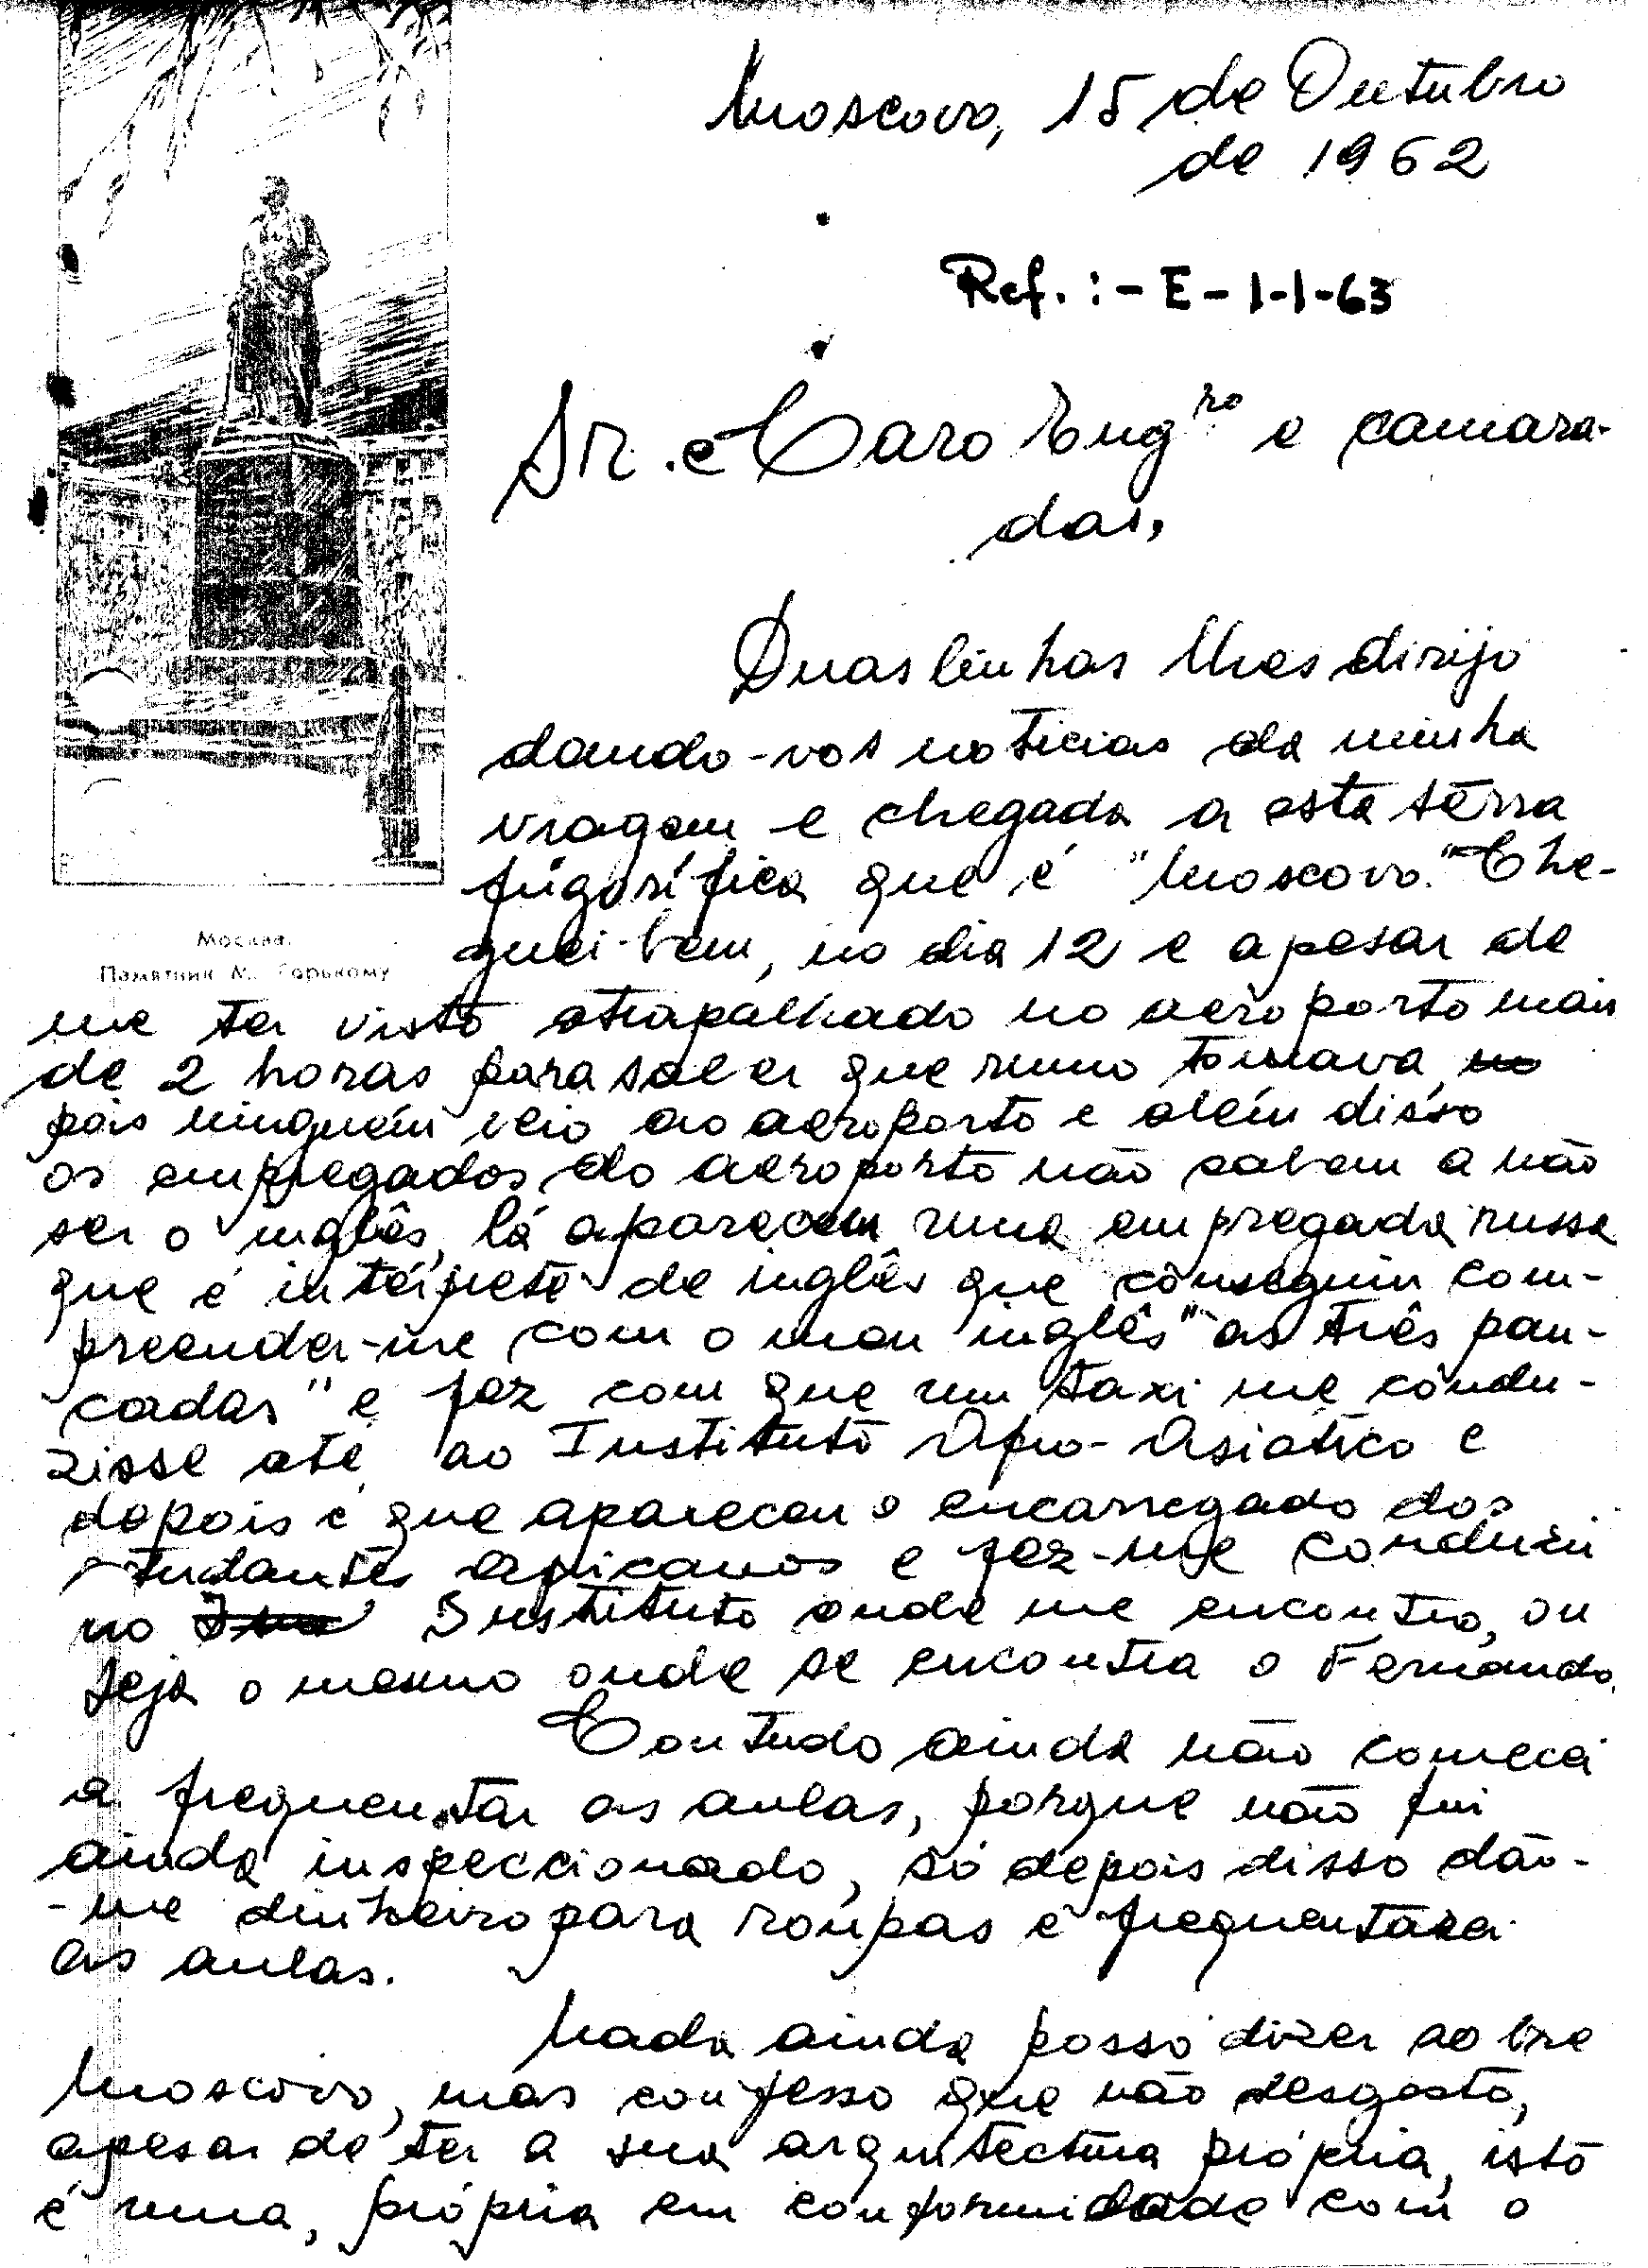 Moscovo, 15 de Outubro
de 1962
Ref.:- E-1-1-63
Sr. e Caro Engro e camara-
das,
Duas linhas lhes dirijo
dando-vos noticias da minha
viagem e chegada a esta terra
frigorífica que é "Moscovo." Che-
guei bem, no dia 12 e apesar de
Москва.
Памятник М. Горькому
me ter visto atrapalhado no aeroporto mais
de 2 horas para saber que rumo tomava, no
pois ninguém veio ao aeroporto e além disso
os empregados do aeroporto não sabem a não
ser o inglês, lá apareceu uma empregada russa
que é intérprete de inglês que conseguiu com-
preender-me com o meu inglês "as três pan-
cadas" e fez com que um taxi me condu-
zisse até ao Instituto Afro-Asiático e
depois é que apareceu o encarregado dos
estudantes africanos e fez-me conduzir
no Instituto onde me encontro, ou
seja o mesmo onde se encontra o Fernando.
Contudo ainda não comecei
a frequentar as aulas, porque não fui
ainda inspeccionado, só depois disso dão-
-me dinheiro para roupas e frequentarei
as aulas.
Nada ainda posso dizer sobre
Moscovo, mas confesso que não desgosto,
apesar de ter a sua arquitectura própria, isto
é uma, própria em conformidade com o